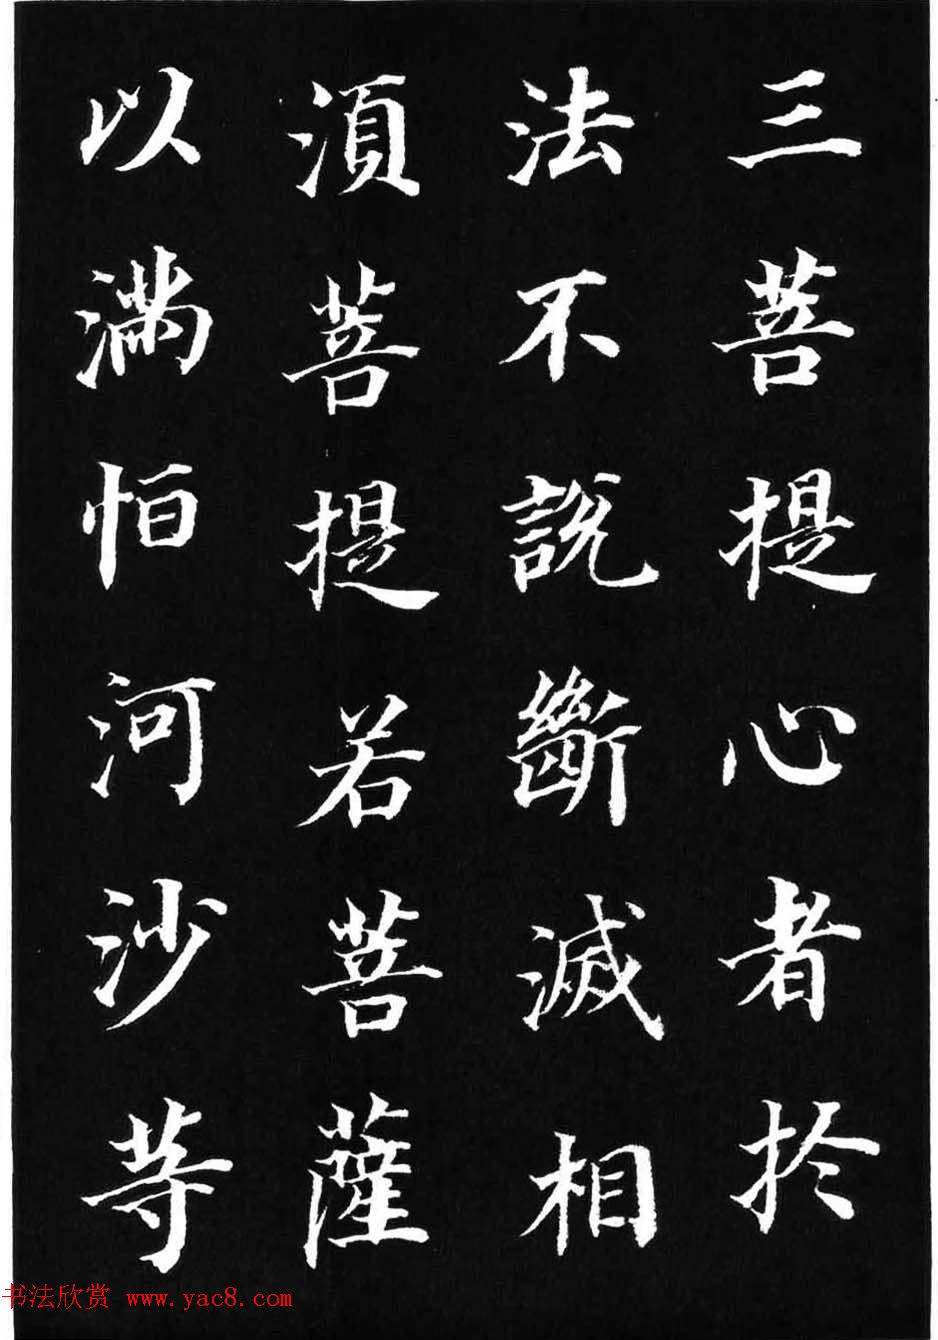 三菩提心者於
法不說斷滅相
須菩提若菩薩
以滿恒河沙等
书法欣赏 www.yac8.com